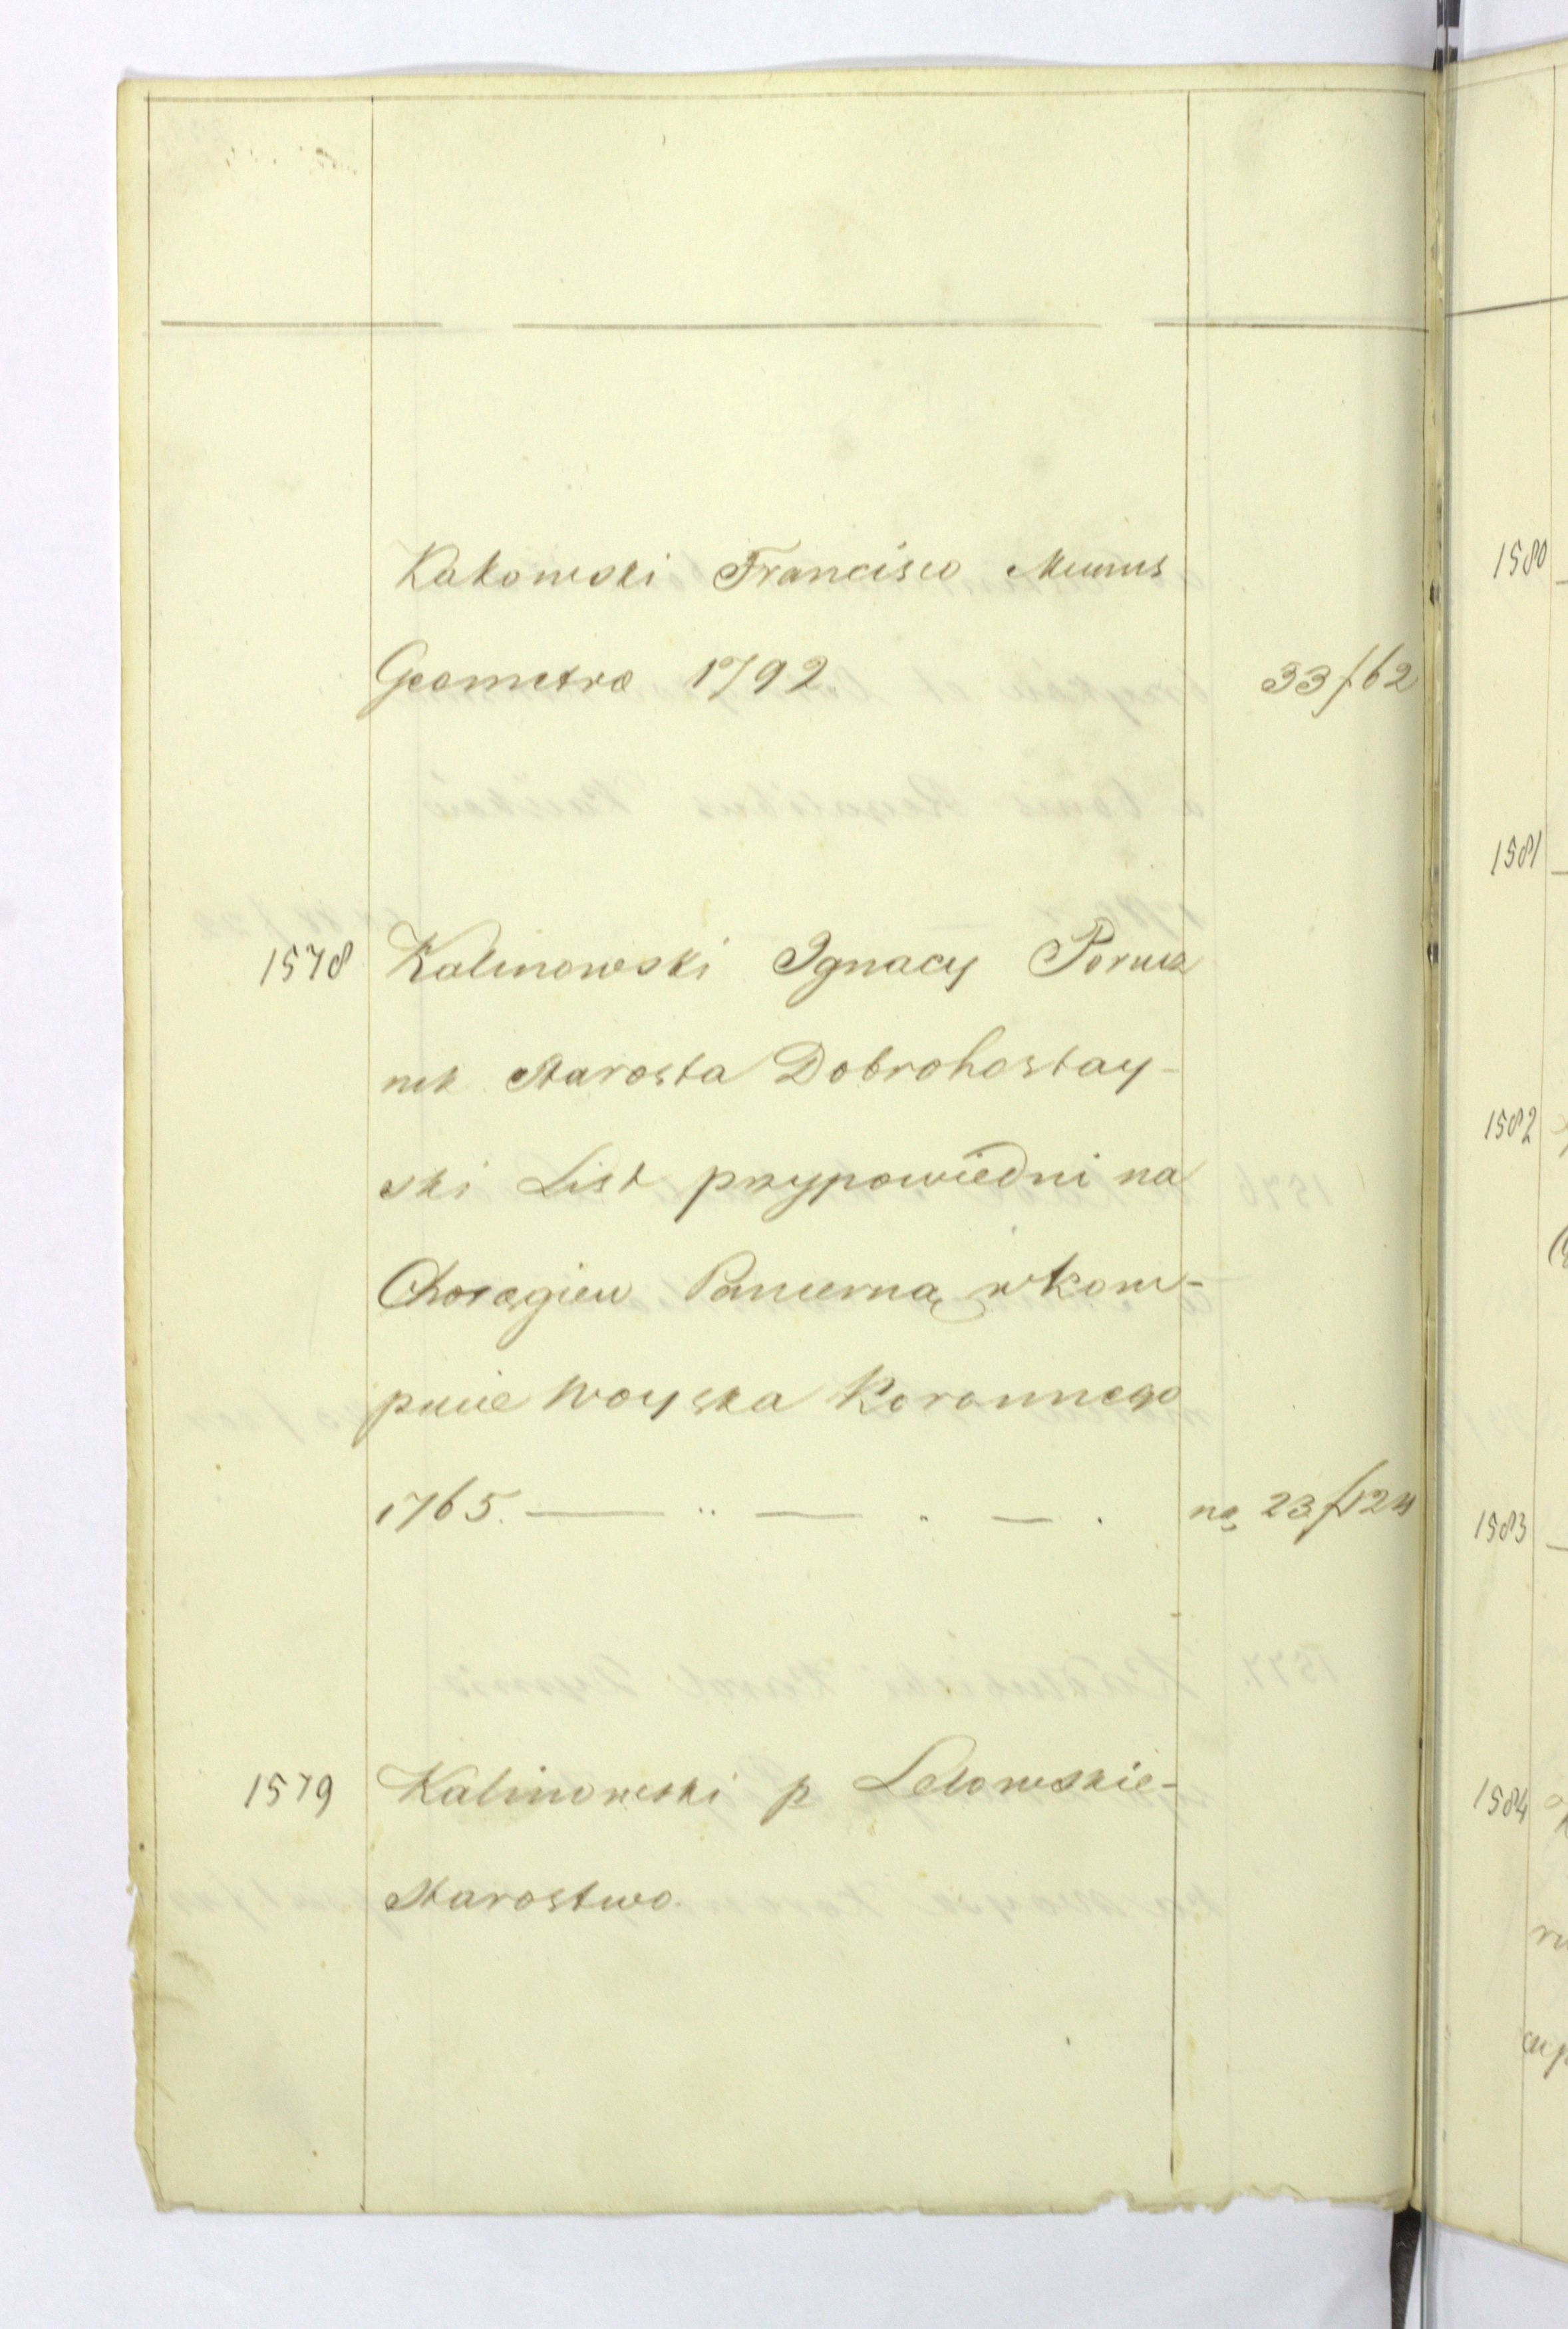 Kakowski Francisco Munus
Geometra 1792. 33 f 62
1578 Kalinowski Ignacy Porucz
nik Starosta Dobrohostay-
ski List przypowiedni na
Chorągiew Pancerną w kom-
pucie Woyska Koronnego
1765. 23 f 124
1579 Kalinowski p Lelowskie-
Starostwo.
1580
1581
1582
1583
1584